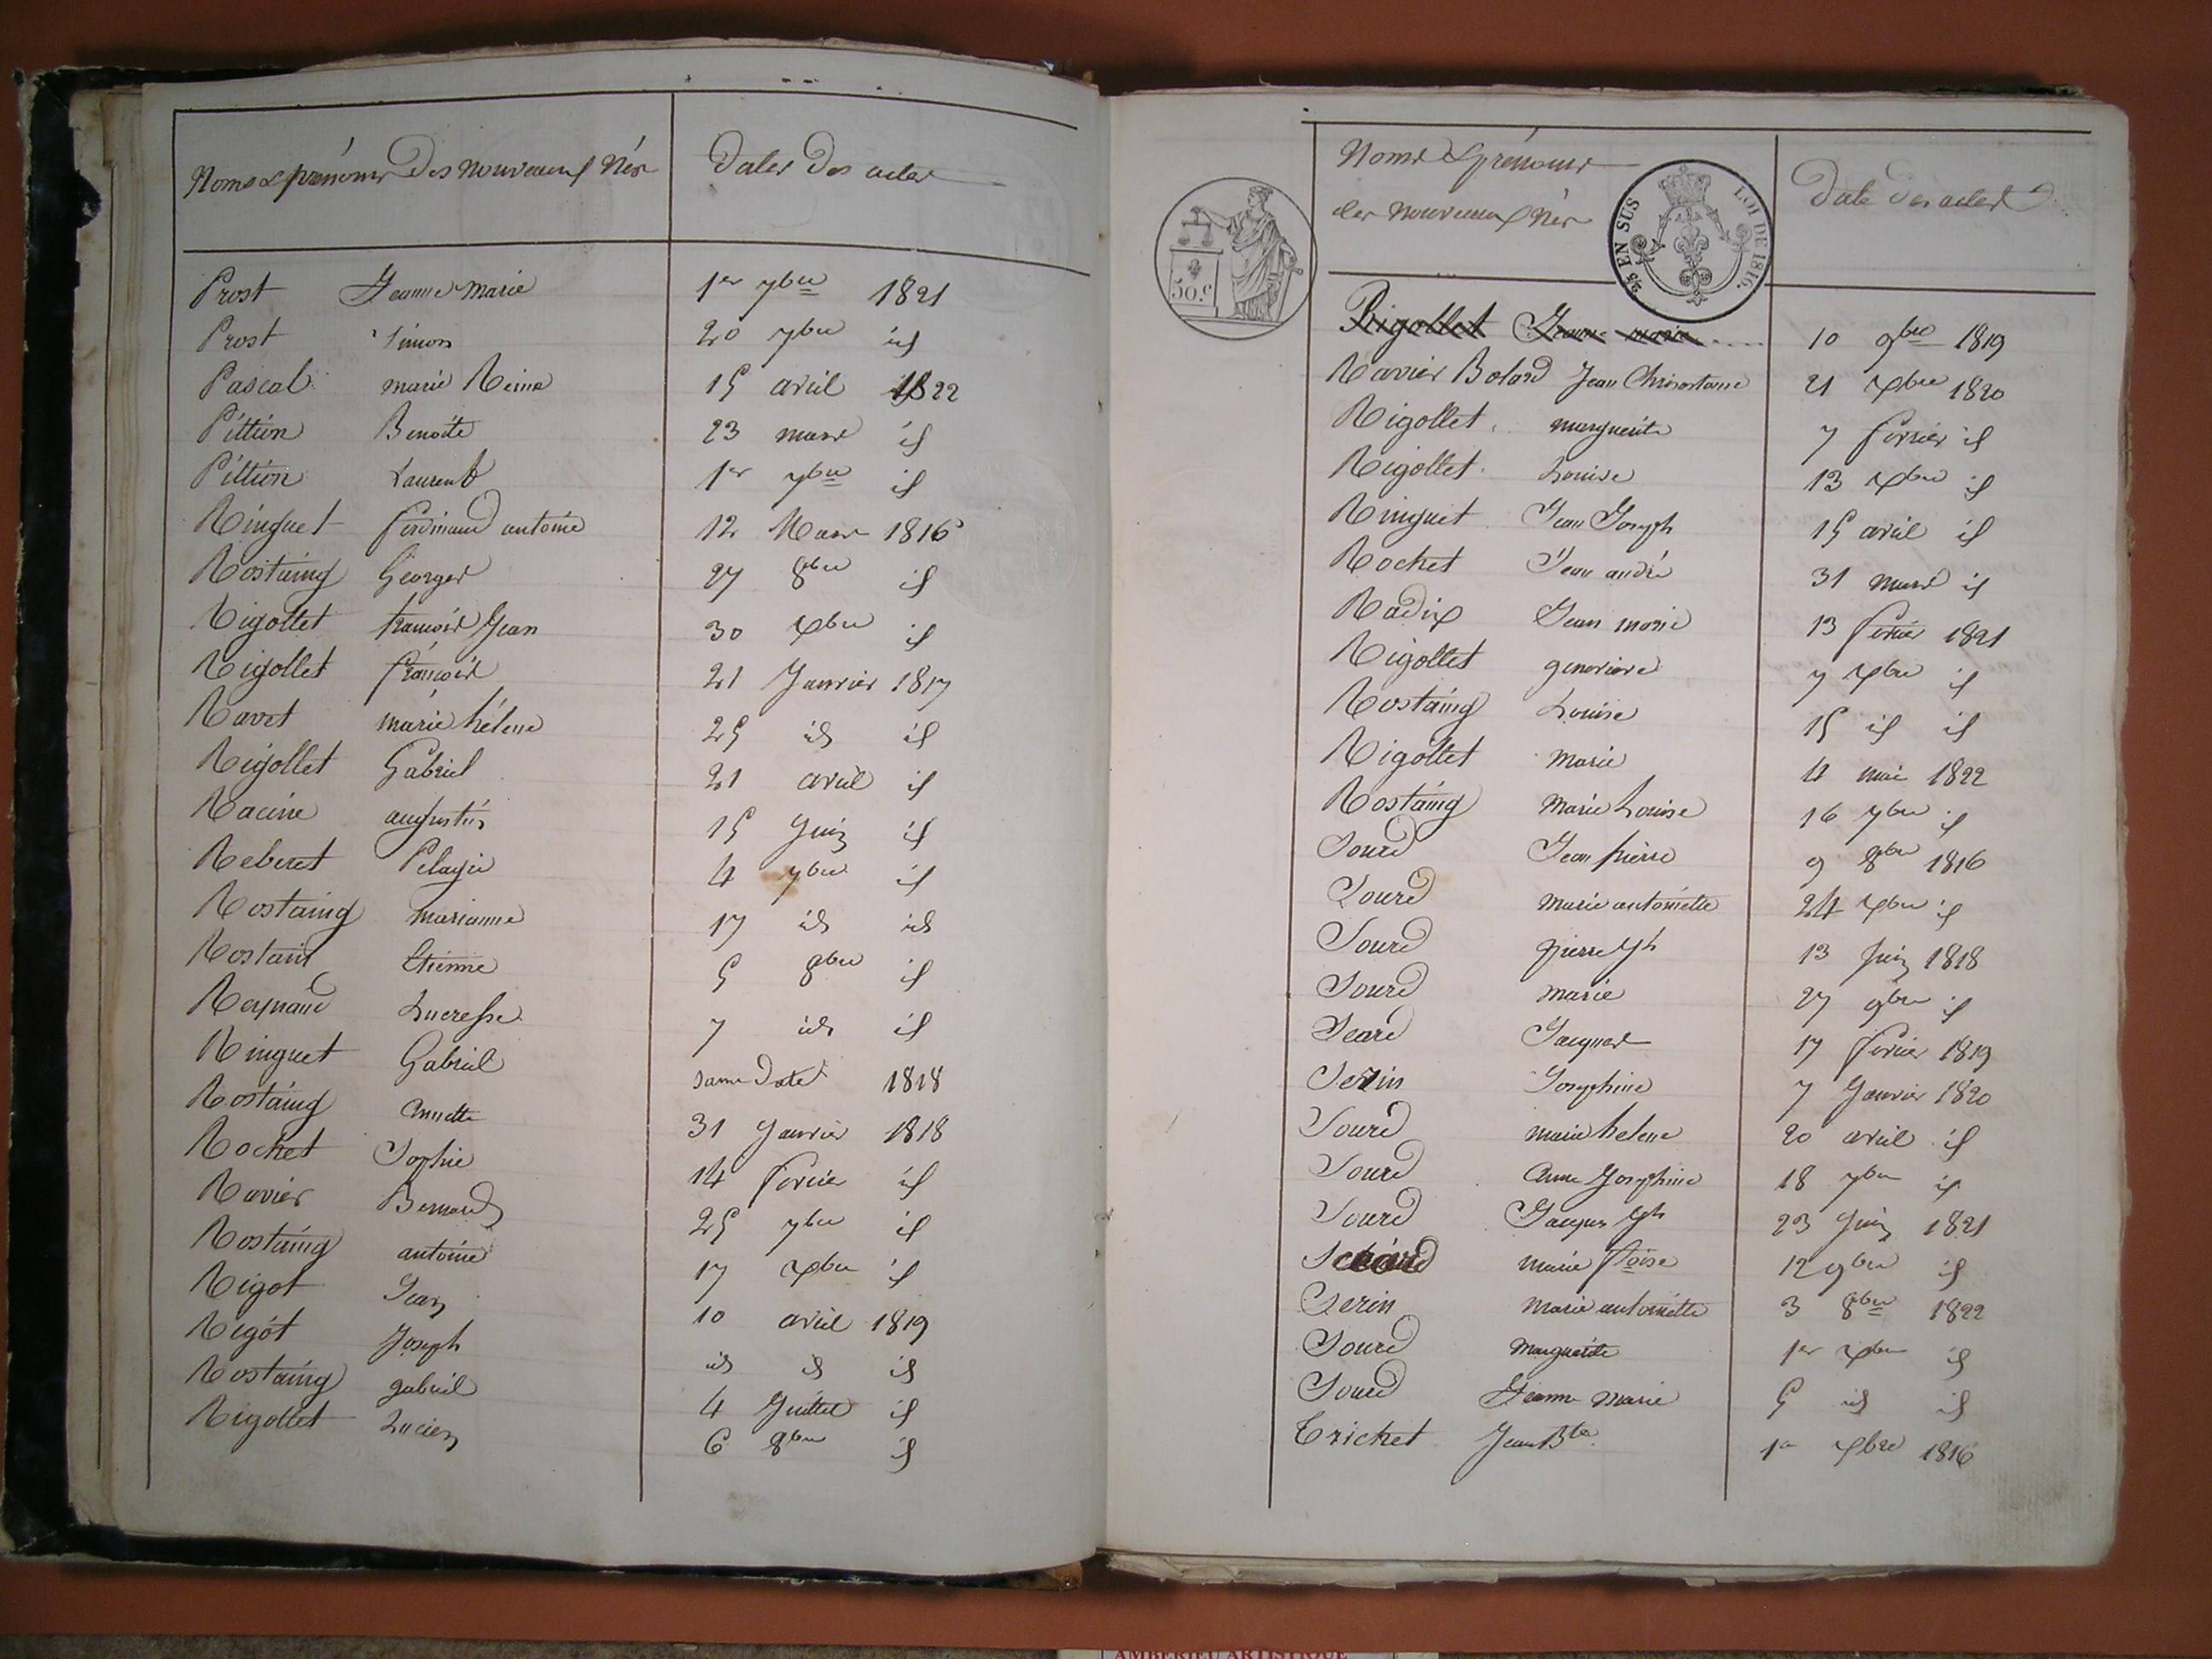 Noms & prénoms des nouveaux Nés Dates des actes
Prost Jeanne Marie 1er 7bre 1821
Prost Simon 20 7bre id
Pascal marie Reine 15 avril 1822
Pittion Benoite 23 mars id
Pittion Laurent 1er 7bre id
Ringuet ferdinand antoine 12 Mars 1816
Rostaing Georges 27 8bre id
Rigollet francois Jean 30 Xbre id
Rigollet francois 21 Janvier 1817
Ravet marie hélene 25 id id
Rigollet Gabriel 21 avril id
Racine augustin 15 Juin id
Reberet Pelagie 4 7bre id
Rostaing marianne 17 id id
Rostain Etienne 5 8bre id
Reynaud Lucresse 7 id id
Ringuet Gabriel Date 1818
Rostaing annette 31 Janvier 1818
Rochet Sophie 14 fevrier id
Ravier Bernard 25 7bre id
Rostaing antoine 17 Xbre id
Rigot Jean 10 avril 1819
Rigot Joseph id id id
Rostaing gabriel 4 Juillet id
Rigollet Lucien 6 8bre id
Noms & prénoms
des nouveaux Nés Date des actes
50.c
25 EN SUS LOI DE 1816.
Rigollet Jeanne marie 10 9bre 1819
Ravier Bolard Jean Chrisostome 21 Xbre 1820
Rigollet marguerite 7 fevrier id
Rigollet Louise 13 Xbre id
Ringuet Jean Joseph 15 avril id
Rochet Jean andré 31 mars id
Radix Jean marie 13 fevrier 1821
Rigollet genevieve 7 Xbre id
Rostaing Louise 15 id id
Rigollet Marie 4 mai 1822
Rostaing Marie Louise 16 7bre id
Sourd Jean pierre 9 8bre 1816
Sourd marie antoinette 24 Xbre id
Sourd pierre Jh 13 Juin 1818
Sourd marie 27 9bre id
Seard Jacques 17 fevrier 1819
Serin Josephine 7 Janvier 1820
Sourd marie helene 20 avril id
Sourd Anne Josephine 18 7bre id
Sourd Jacques Jh 23 Juin 1821
marie fcoise 12 9bre id
Serin Marie antoinette 3 8bre 1822
Sourd Marguerite 1er Xbre id
Sourd Jeanne Marie 5 id id
Trichet Jean Bte 1er Xbre 1816
AMBERIEU ARTISTIQUE